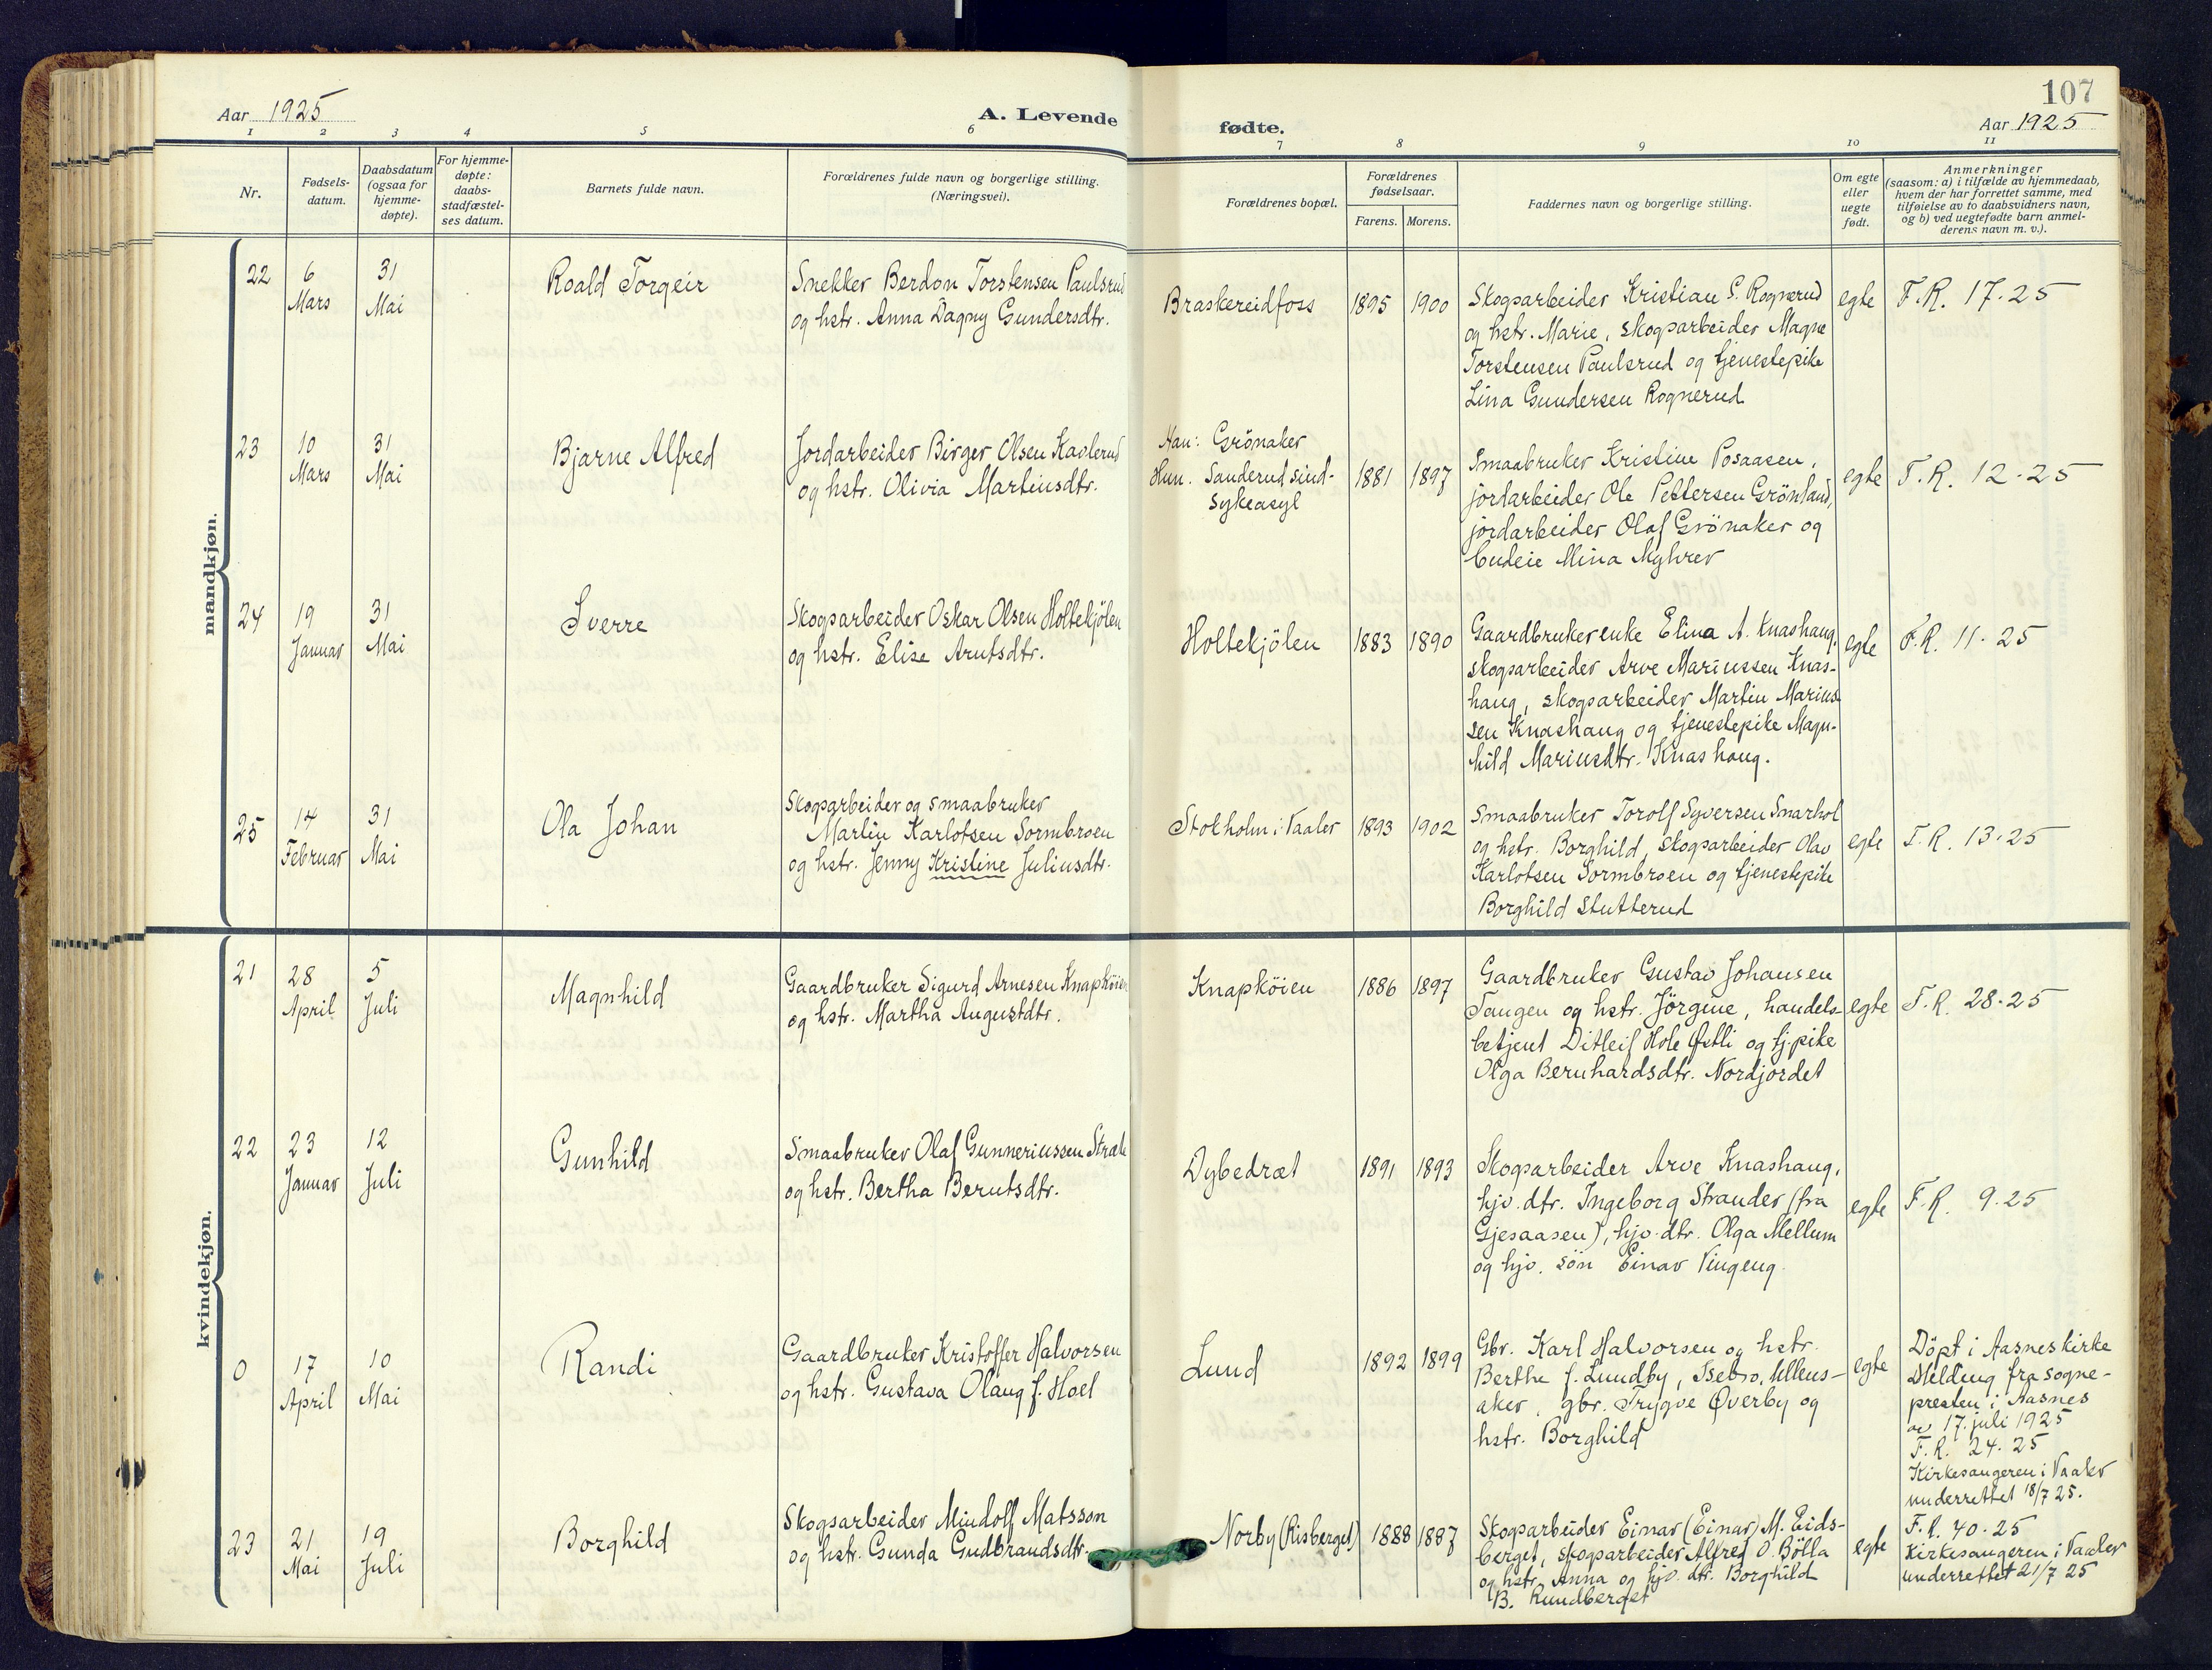 107
Aar 1925
A. Levende
fødte.
Aar 1925
1 2 3 4 5 6 7 8 9 10 11
Nr.
Fødsels-
datum.
Daabsdatum
(ogsaa for
hjemme-
døpte).
For hjemme-
døpte:
daabs-
stadfæstel-
ses datum.
Barnets fulde navn.
Forældrenes fulde navn og borgerlige stilling.
(Næringsvei).
Forældrenes bopæl.
Forældrenes
fødselsaar.
Farens. Morens.
Faddernes navn og borgerlige stilling.
Om egte
eller
uegte
født.
Anmerkninger
(saasom: a) i tilfælde av hjemmedaab,
hvem der har forrettet samme, med
tilføielse av to daabsvidners navn,
og b) ved uegtefødte barn anmel-
derens navn m. v.).
mandkjøn.
22
6
Mars
31
Mai
Roald Torgeir
Snekker Berdon Torstensen Paulsrud
og hstr. Anna Dagny Gundersdtr.
Braskereidfoss
1895
1900
Skogsarbeider Kristian S. Rognerud
og hstr. Marie, skogsarbeider Magne
Torstensen Paulsrud og tjenestepike
Lina Gundersen Rognerud
egte
F.R. 17-25
23
10
Mars
31
Mai
Bjarne Alfred
Jordarbeider Birger Olsen Kavlerud
og hstr. Olivia Martinsdtr.
Han: Grönaker
Hun. Sanderud sind-
sykeasyl
1881
1897
Smaabruker Kristine Posaasen,
jordarbeider Ole Pettersen Grönland,
jordarbeider Olaf Grönaker og
budeie Mina Myhrer
egte
F.R. 12-25
24
19
Januar
31
Mai
Sverre
Skogsarbeider Oskar Olsen Holtekjölen
og hstr. Elise Arntsdtr.
Holtekjölen
1883
1890
Gaardbrukerenke Elina A. Knashaug,
skogsarbeider Arve Mariussen Knas-
haug, skogsarbeider Martin Marius-
sen Knashaug og tjenestepike Magn-
hild Mariusdtr. Knashaug.
egte
F.R. 11-25
25
14
Februar
31
Mai
Ola Johan
Skogsarbeider og smaabruker
Martin Karlotsen Sormbroen
og hstr. Jenny Kristine Juliusdtr.
Stokholm i Vaaler
1893
1902
Smaabruker Torolf Syversen Snarhol
og hstr. Borghild, skogsarbeider Olav
Karlotsen Sormbroen og tjenestepike
Borghild Stutterud
egte
F.R. 13-25
kvindekjøn.
21
28
April
5
Juli
Magnhild
Gaardbruker Sigurd Arnesen Knapköien
og hstr. Martha Augustdtr.
Knapköien
1886
1897
Gaardbruker Gustav Johansen
Tangen og hstr. Jörgine, handels-
betjent Ditleif Hole Østli og tj.pike
Olga Bernhardsdtr. Nordjordet
egte
F.R. 28-25
22
23
Januar
12
Juli
Gunhild
Smaabruker Olaf Gunneriussen
og hstr. Bertha Berntsdtr.
Dybedræt
1891
1893
Skogsarbeider Arve Knashaug,
hjv. dtr. Ingeborg Strander (fra
Gjesaasen), hjv. dtr. Olga Mellum
og hjv. søn Einar Vingeng
egte
F.R. 9-25
0
17
April
10
Mai
Randi
Gaardbruker Kristoffer Halvorsen
og hstr. Gustava Olaug f. Hoel
Lund
1892
1899
Gbr. Karl Halvorsen og hstr.
Berthe f. Lundby, Ullens-
aker, gbr. Trygve Øverby og
hstr. Borghild
egte
Döpt i Aasnes kirke
Melding fra sogne-
presten i Aasnes
av 17. juli 1925
F.R. 24-25
Kirkesangeren i Vaaler
underrettet 18/7 25.
23
21
Mai
19
Juli
Borghild
Skogsarbeider Mindolf Matsson
og hstr. Gunda Gudbrandsdtr.
Norby (Risberget)
1888
1887
Skogsarbeider Einar (Einar) M. Eids-
berget, skogsarbeider Alfred O. Bölla
og hstr. Anna og hjv. dtr. Borghild
B. Rundberget
egte
F.R. 40-25
Kirkesangeren i Vaaler
underrettet 21/7 25